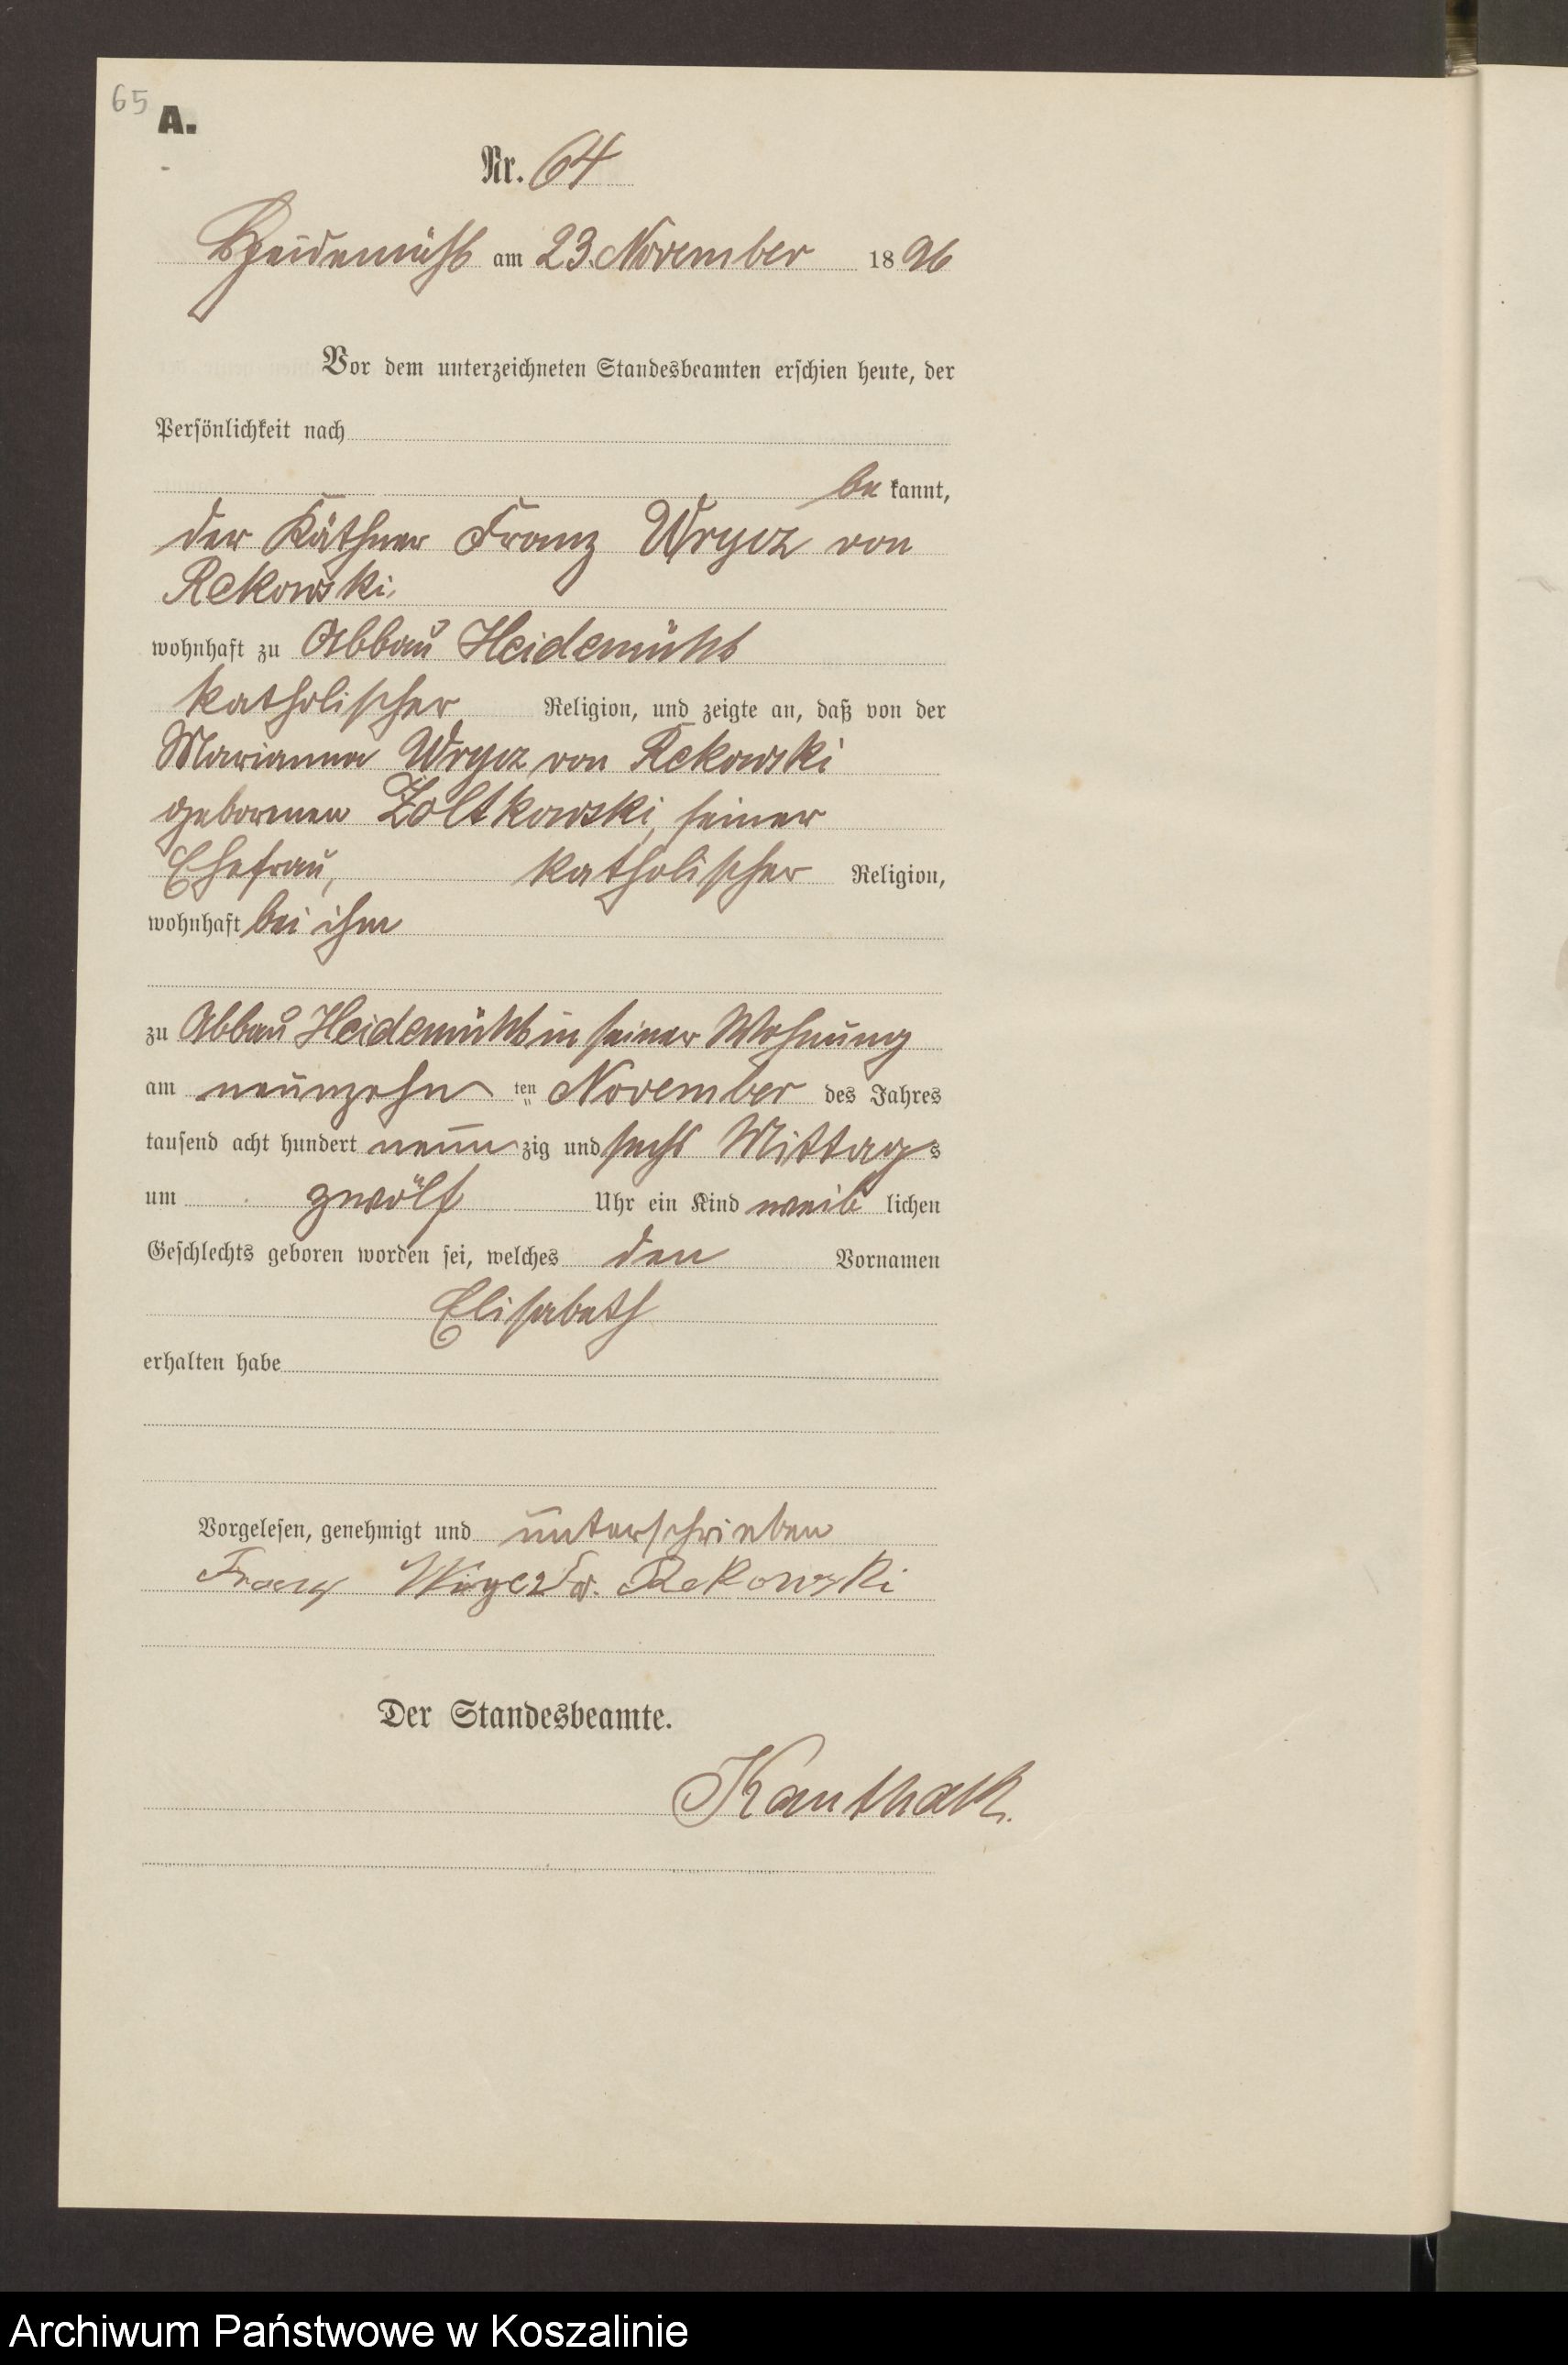 65
A.
Nr. 64
Heidemühl am 23. November 1896
Vor dem unterzeichneten Standesbeamten erschien heute, der
Persönlichkeit nach
be kannt,
der Käthner Franz Wrycz von
Rekowski,
wohnhaft zu Abbau Heidemühl
katholischer Religion, und zeigte an, daß von der
Marianna Wrycz von Rekowski
geborenen Zoltkowski, seiner
Ehefrau, katholischer Religion,
wohnhaft bei ihm
zu Abbau Heidemühl in seiner Wohnung
am neunzehn ten November des Jahres
tausend acht hundert neun zig und sechs Mittags
um zwölf Uhr ein Kind weib lichen
Geschlechts geboren worden sei, welches den Vornamen
Elisabeth
erhalten habe
Vorgelesen, genehmigt und unterschrieben
Franz v. Rekowski
Der Standesbeamte.
Kanthak.
Archiwum Państwowe w Koszalinie